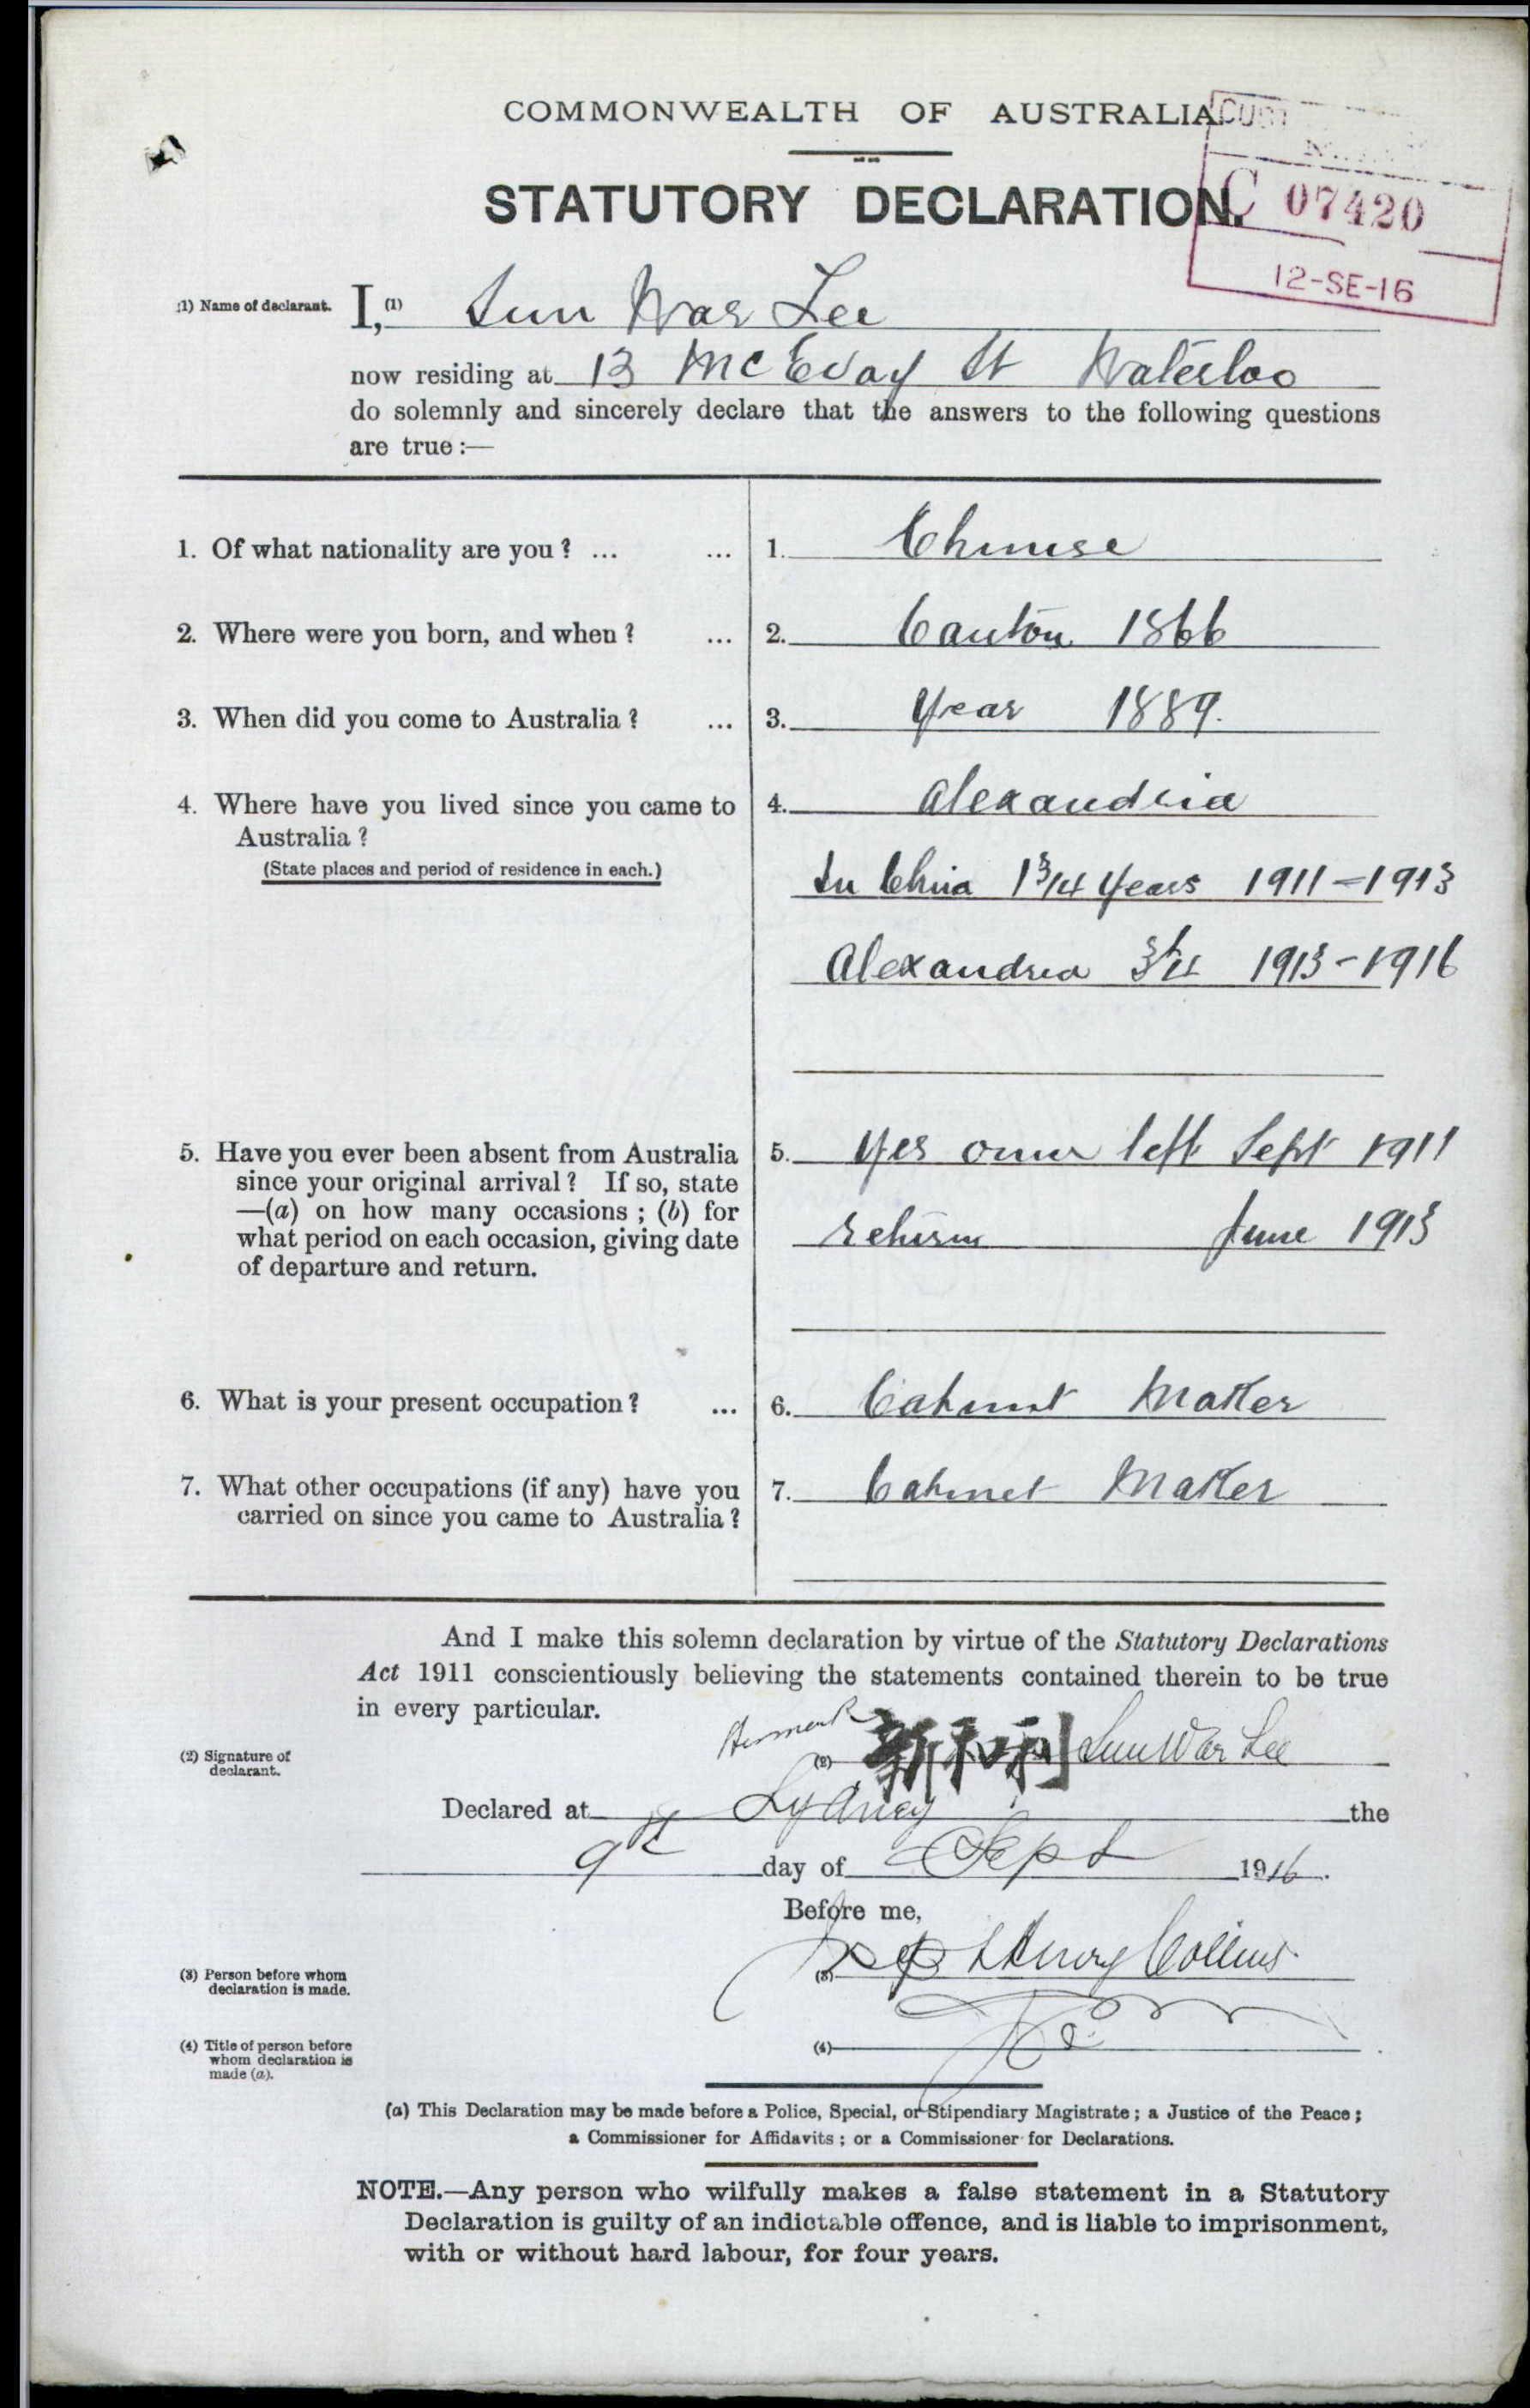 COMMONWEALTH OF AUSTRALIA
C 07420
12-SE-16
STATUTORY DECLARATION.
(1) Name of declarant. I,(1) Sun War Lee
now residing at 13 McEvoy St Waterloo
do solemnly and sincerely declare that the answers to the following questions
are true:—
1. Of what nationality are you? ... ... 1. Chinese
2. Where were you born, and when? ... 2. Canton 1866
3. When did you come to Australia? ... 3. Year 1889.
4. Where have you lived since you came to 4. Alexandria
Australia?
(State places and period of residence in each.) In China 1 3/4 Years 1911-1913
Alexandria 1913-1916
5. Have you ever been absent from Australia 5. Yes once left Sept 1911
since your original arrival? If so, state
—(a) on how many occasions; (b) for
what period on each occasion, giving date return June 1913
of departure and return.
6. What is your present occupation? ... 6. Cabinet Maker
7. What other occupations (if any) have you 7. Cabinet Maker
carried on since you came to Australia?
And I make this solemn declaration by virtue of the Statutory Declarations
Act 1911 conscientiously believing the statements contained therein to be true
in every particular.
(2) Signature of declarant. His mark (2) 新和利 Sun War Lee
Declared at Sydney the
9th day of Sept 1916.
Before me,
(3) Person before whom declaration is made. (3) Henry Collins
(4) Title of person before whom declaration is made (a). (4)
(a) This Declaration may be made before a Police, Special, or Stipendiary Magistrate; a Justice of the Peace;
a Commissioner for Affidavits; or a Commissioner for Declarations.
NOTE.—Any person who wilfully makes a false statement in a Statutory
Declaration is guilty of an indictable offence, and is liable to imprisonment,
with or without hard labour, for four years.